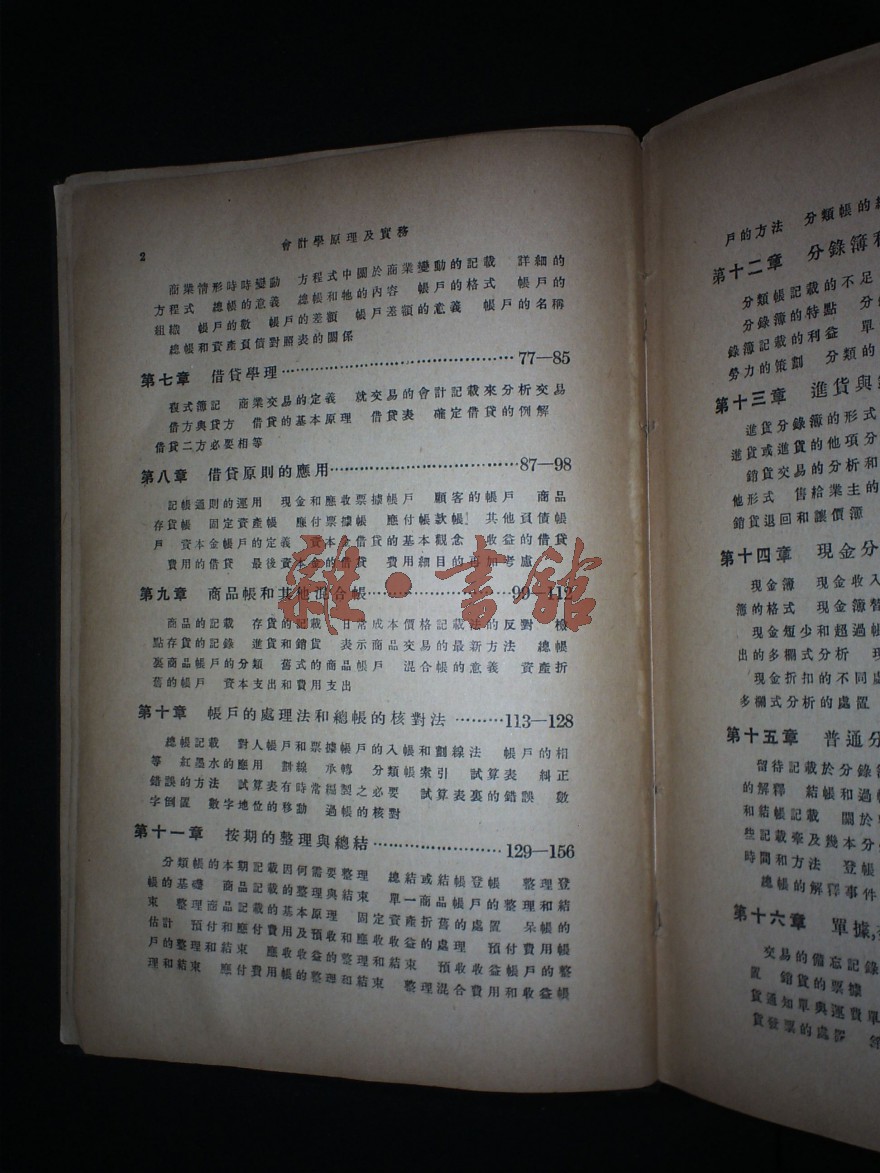 2
會計學原理及實務
商業情形時時變動 方程式中關於商業變動的記載 詳細的
方程式 總帳的意義 總帳和牠的內容 帳戶的格式 帳戶的
組織 帳戶的數 帳戶的差額 帳戶差額的意義 帳戶的名稱
總帳和資產負債對照表的關係
第七章 借貸學理 77—85
複式簿記 商業交易的定義 就交易的會計記載來分析交易
借方與貸方 借貸的基本原理 借貸表 確定借貸的例解
借貸二方必要相等
第八章 借貸原則的應用 87—98
記帳通則的運用 現金和應收票據帳戶 顧客的帳戶 商品
存貨帳 固定資產帳 應付票據帳 應付帳款帳 其他負債帳
戶 資本金帳戶的定義 資本金借貸的基本觀念 收益的借貸
費用的借貸 最後資本金的借貸 費用細目的再加考慮
第九章 商品帳和其他混合帳 99—112
商品的記載 存貨的記載 日常成本價格記載法的反對 檢
點存貨的記錄 進貨和銷貨 表示商品交易的最新方法 總帳
裏商品帳戶的分類 舊式的商品帳戶 混合帳的意義 資產折
舊的帳戶 資本支出和費用支出
第十章 帳戶的處理法和總帳的核對法 113—128
總帳記載 對人帳戶和票據帳戶的入帳和劃線法 帳戶的相
等 紅墨水的應用 劃線 承轉 分類帳索引 試算表 糾正
錯誤的方法 試算表有時常編製之必要 試算表裏的錯誤 數
字倒置 數字地位的移動 過帳的核對
第十一章 按期的整理與總結 129—156
分類帳的本期記載因何需要整理 總結或結帳登帳 整理登
帳的基礎 商品記載的整理與結束 單一商品帳戶的整理和結
束 整理商品記載的基本原理 固定資產折舊的處置 呆帳的
估計 預付和應付費用及預收和應收收益的處理 預付費用帳
戶的整理和結束 應收收益的整理和結束 預收收益帳戶的整
理和結束 應付費用帳的整理和結束 整理混合費用和收益帳
雜·書館
戶的方法 分類帳的
第十二章 分錄簿和
分類帳記載的不足
分錄簿的特點
錄簿記載的利益 單
勞力的策劃 分類的
第十三章 進貨與
進貨分錄簿的形式
進貨或進貨的他項分
銷貨交易的分析和
他形式 售給業主的
銷貨退回和讓價簿
第十四章 現金分
現金簿 現金收入
簿的格式 現金簿
現金短少和超過帳
出的多欄式分析
現金折扣的不同處
多欄式分析的處置
第十五章 普通分
留待記載於分錄簿
的解釋 結帳和過帳
和結帳記載 關於
些記載牽及幾本分
時間和方法 登帳
總帳的解釋事件
第十六章 單據,
交易的備忘記錄
置 銷貨的票據
貨通知單與運費單
貨發票的處置